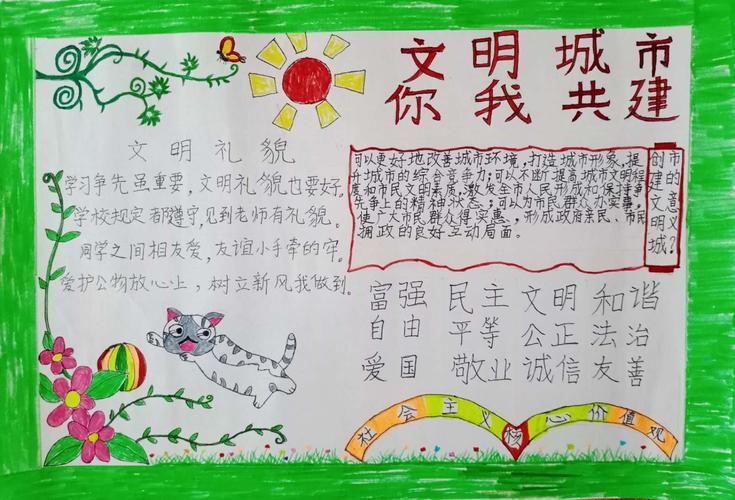 文明城市
你我共建
文明礼貌
学习争先虽重要,文明礼貌也要好。
学校规定都遵守,见到老师有礼貌。
同学之间相友爱,友谊小手牵的牢。
爱护公物放心上,树立新风我做到。
创建文明城
市的意义?
可以更好地改善城市环境,打造城市形象,提
升城市的综合竞争力;可以不断提高城市文明程
度和市民文明素质,激发全市人民形成和保持争
先争上的精神状态;可以为市民群众办实事,
使广大市民群众得实惠,形成政府亲民、市民
拥政的良好互动局面。
富强 民主 文明 和谐
自由 平等 公正 法治
爱国 敬业 诚信 友善
社会主义核心价值观